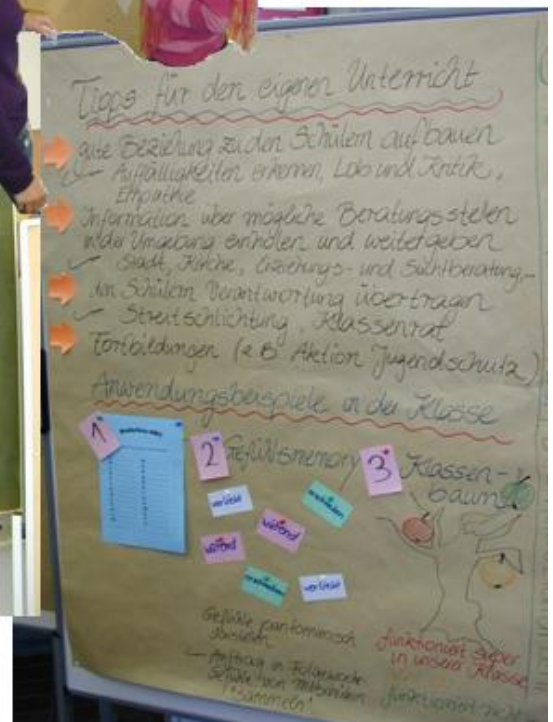 Tipps für den eigenen Unterricht
gute Beziehung zu den Schülern aufbauen
Auffälligkeiten erkennen, Lob und Kritik,
Empathie
Information über mögliche Beratungsstellen
in der Umgebung einholen und weitergeben
Stadt, Kirche, Erziehungs- und Suchtberatung,-
den Schülern Verantwortung übertragen
Streitschlichtung, Klassenrat
Fortbildungen (z.B. Aktion Jugendschutz)
Anwendungsbeispiele in der Klasse
1
2 Gefühlsmemory
3 Klassen-
baum
verliebt
wütend
wütend
verliebt
Gefühle pantomimisch
funktioniert super
in unserer Klasse
Gefühle von Mitschülern
"sammeln"
funktioniert